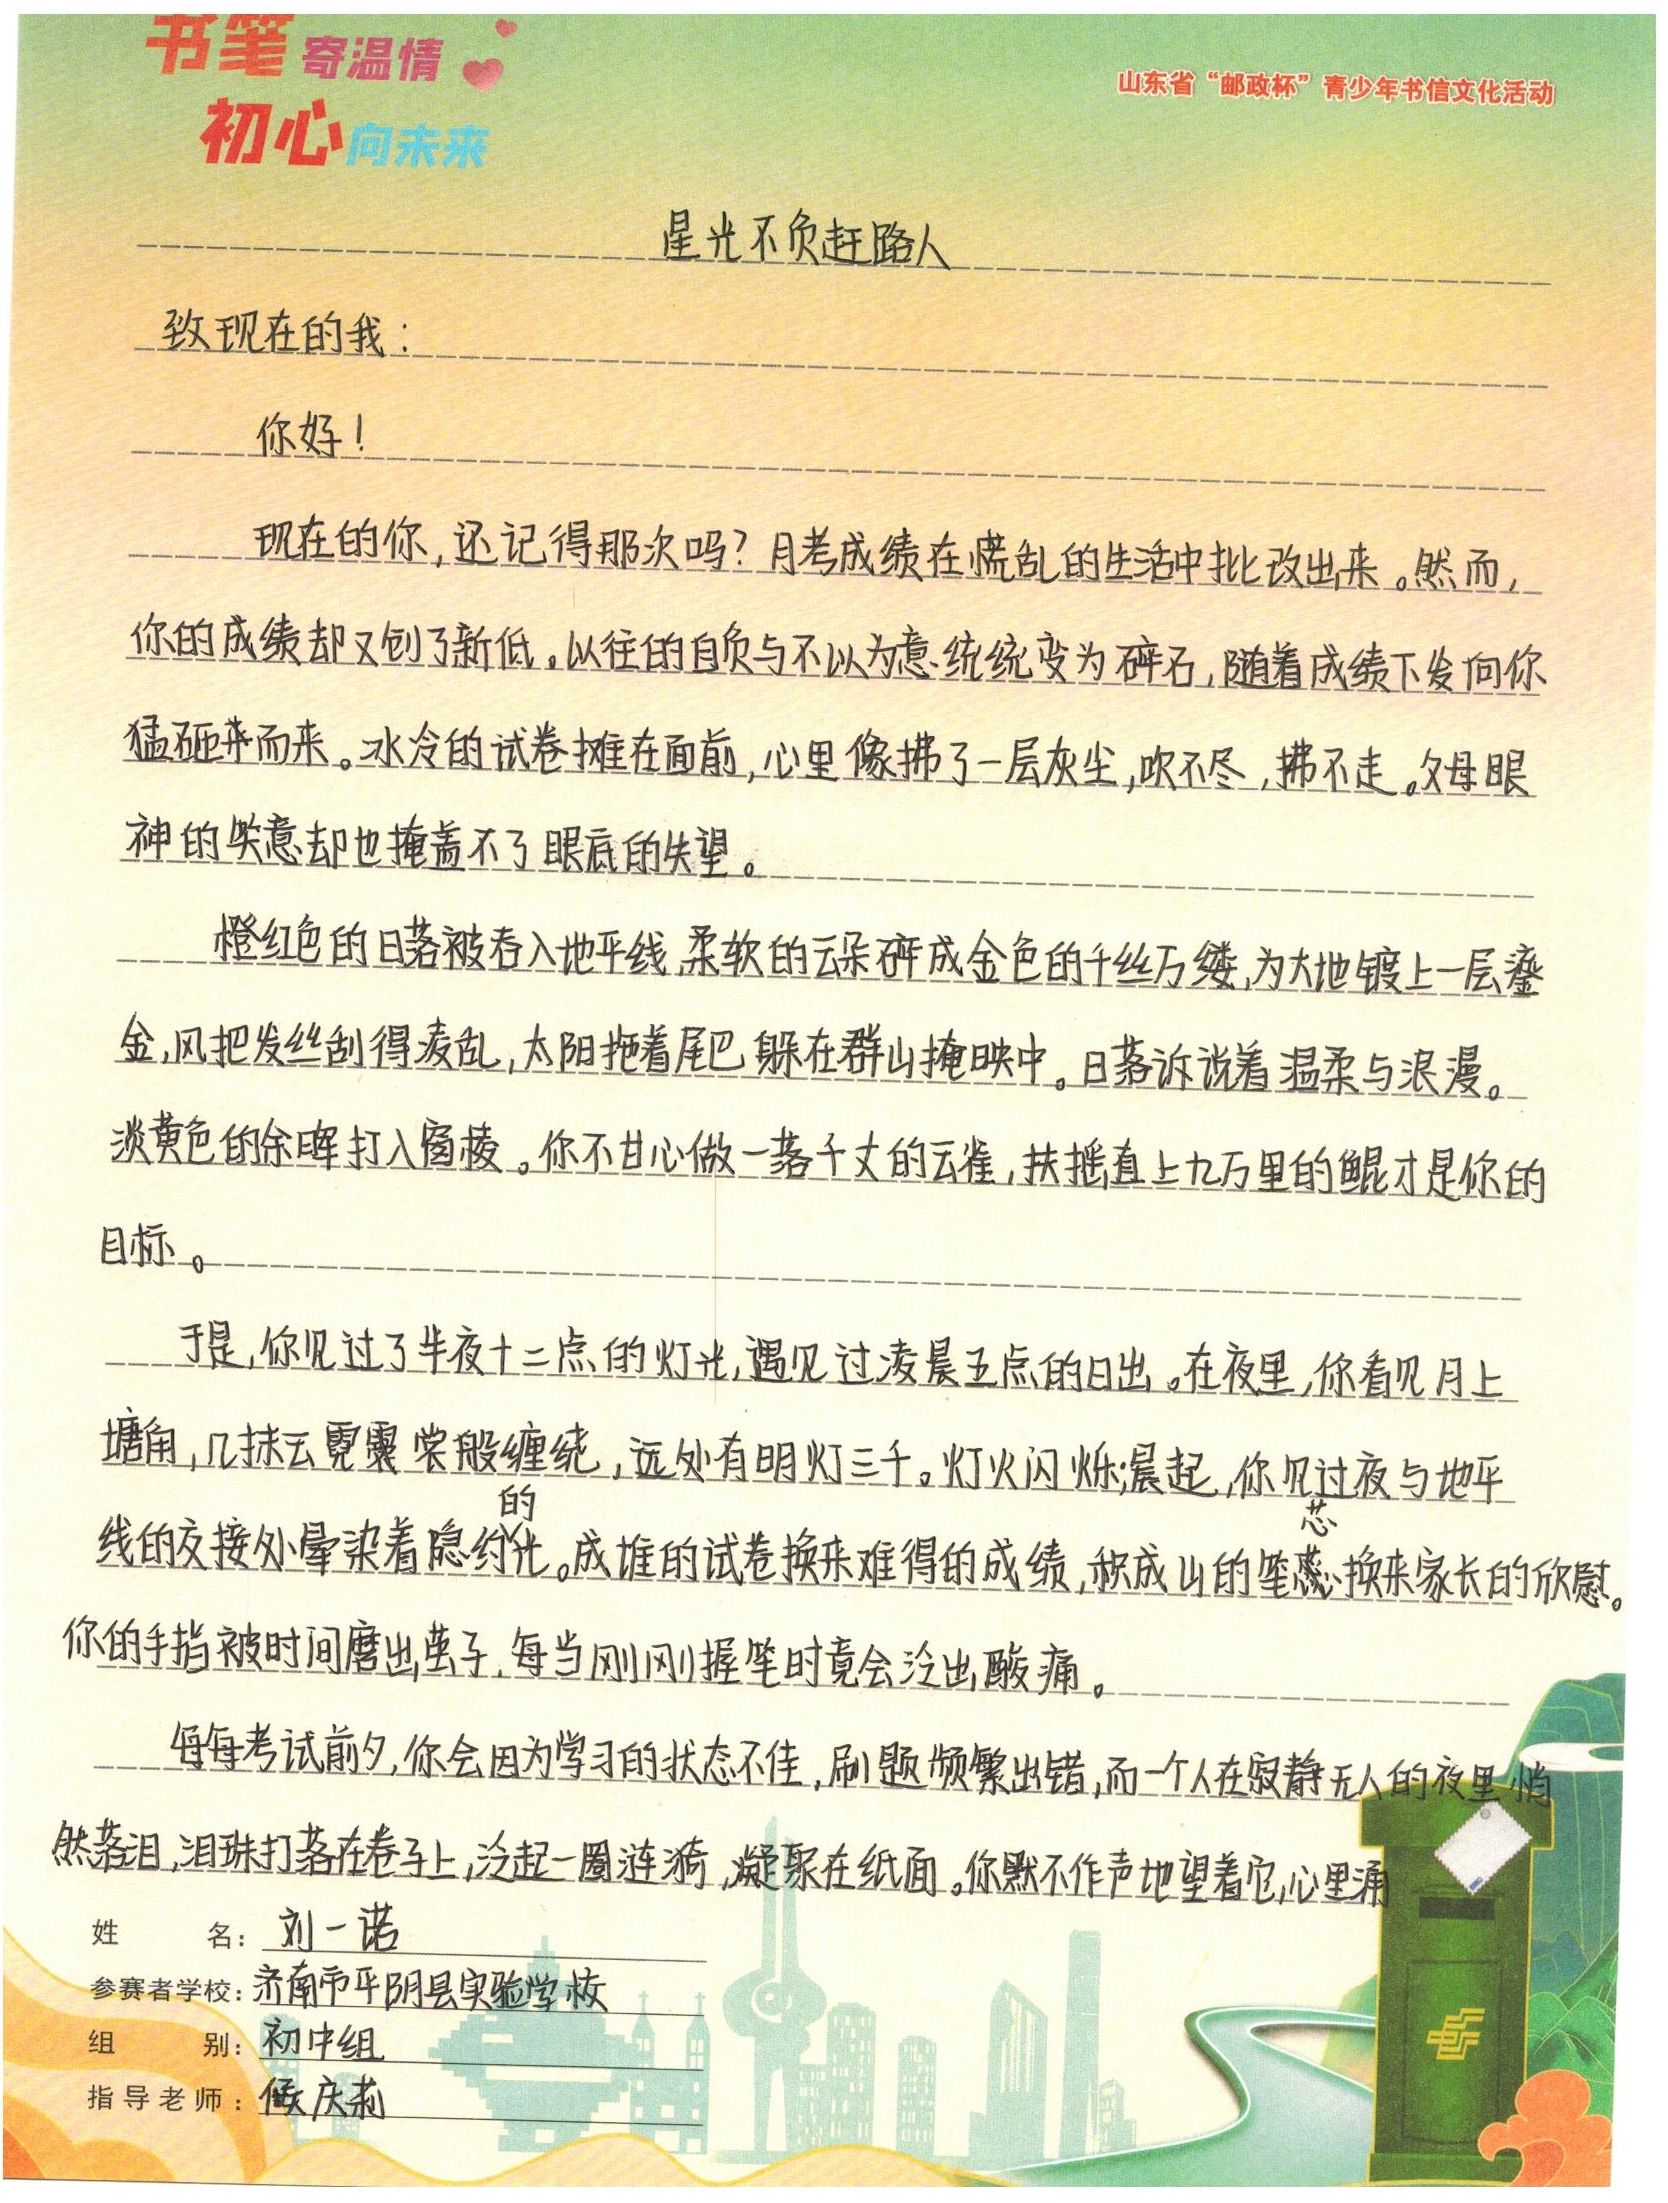 书笔寄温情
初心向未来
山东省“邮政杯”青少年书信文化活动
星光不负赶路人
致现在的我：
你好！
现在的你，还记得那次吗？月考成绩在慌乱的生活中批改出来。然而，
你的成绩却又创了新低。以往的自负与不以为意统统变为碎石，随着成绩下发向你
猛砸来而来。冰冷的试卷摊在面前，心里像拂了一层灰尘，吹不尽，拂不走。父母眼
神的笑意却也掩盖不了眼底的失望。
橙红色的日落被吞入地平线，柔软的云朵碎成金色的千丝万缕，为大地镀上一层鎏
金，风把发丝刮得凌乱，太阳拖着尾巴躲在群山掩映中。日落诉说着温柔与浪漫。
淡黄色的余晖打入窗棱。你不甘心做一落千丈的云雀，扶摇直上九万里的鲲才是你的
目标。
于是，你见过了半夜十二点的灯光，遇见过凌晨五点的日出。在夜里，你看见月上
塘角，几抹云霓裳般缠绕，远处有明灯三千。灯火闪烁；晨起，你见过夜与地平
线的交接处晕染着隐约的光。成堆的试卷换来难得的成绩，积成山的笔芯换来家长的欣慰。
你的手指被时间磨出茧子，每当刚刚握笔时竟会泛出酸痛。
每每考试前夕，你会因为学习的状态不佳，刷题频繁出错，而一个人在寂静无人的夜里悄
然落泪，泪珠打落在卷子上，泛起一圈涟漪，凝聚在纸面。你默不作声地望着它，心里涌
姓名：刘一诺
参赛者学校：济南市平阴县实验学校
组别：初中组
指导老师：侯庆莉